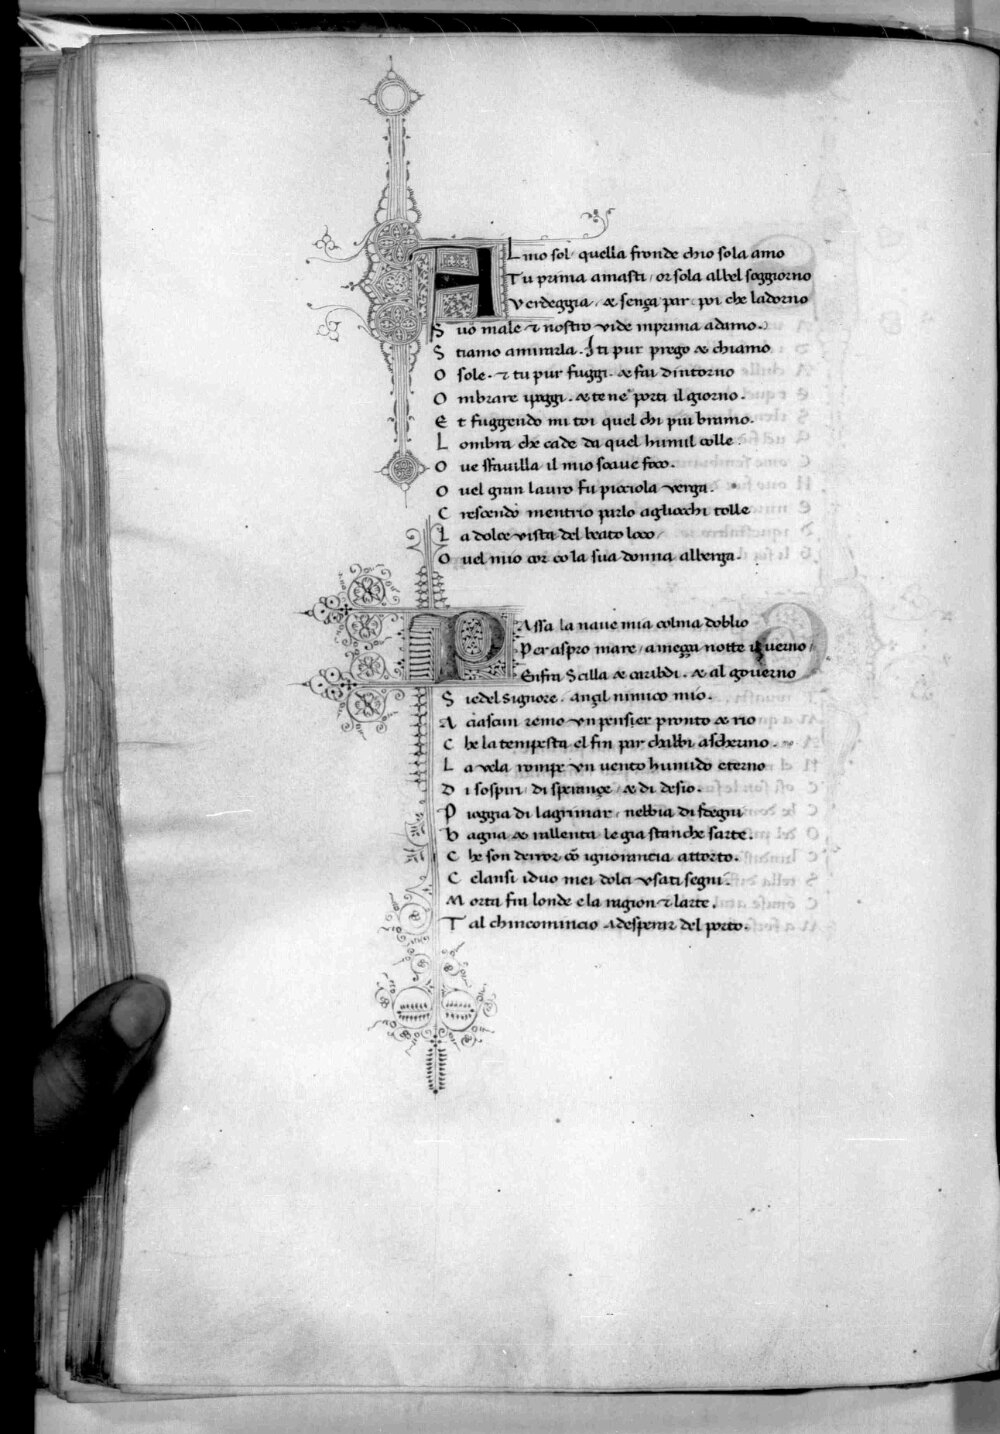 ALmo sol quella fronde chio sola amo
Tu prima amasti / or sola albel soggiorno
Verdeggia / & senza par / poi che ladorno
Suo male & nostro vide inprima adamo.
Stiamo amirarla. Iti pur prego & chiamo
O sole. & tu pur fuggi. & fai dintorno
Ombrare ipoggi. & te ne porti il giorno.
Et fuggendo mi toi quel chi piu bramo.
Lombra che cade da quel humil colle.
Oue sfauilla il mio soaue foco.
Ouel gran lauro fu picciola verga.
Crescendo mentrio parlo agliocchi tolle
La dolce vista del beato loco /
Ouel mio cor co la sua donna alberga.
PAssa la naue mia colma doblio
Per aspro mare / a meza notte il verno /
Enfra Scilla & caribdi. & al gouerno
Siedel Signore. anzil nimico mio.
A ciascun remo vn pensier pronto & rio
Che la tempesta el fin par chabbi ascherno.
La vela rompe vn uento humido eterno
Di sospir / di speranze / & di desio.
Pioggia di lagrimar / nebbia di sdegni
Bagna & rallenta le gia stanche sarte.
Che son derror cō ignorancia attorto.
Celansi iduo mei dolci vsati segni.
Morta fra londe e la ragion & larte.
Tal chincomincio adesperar del porto.